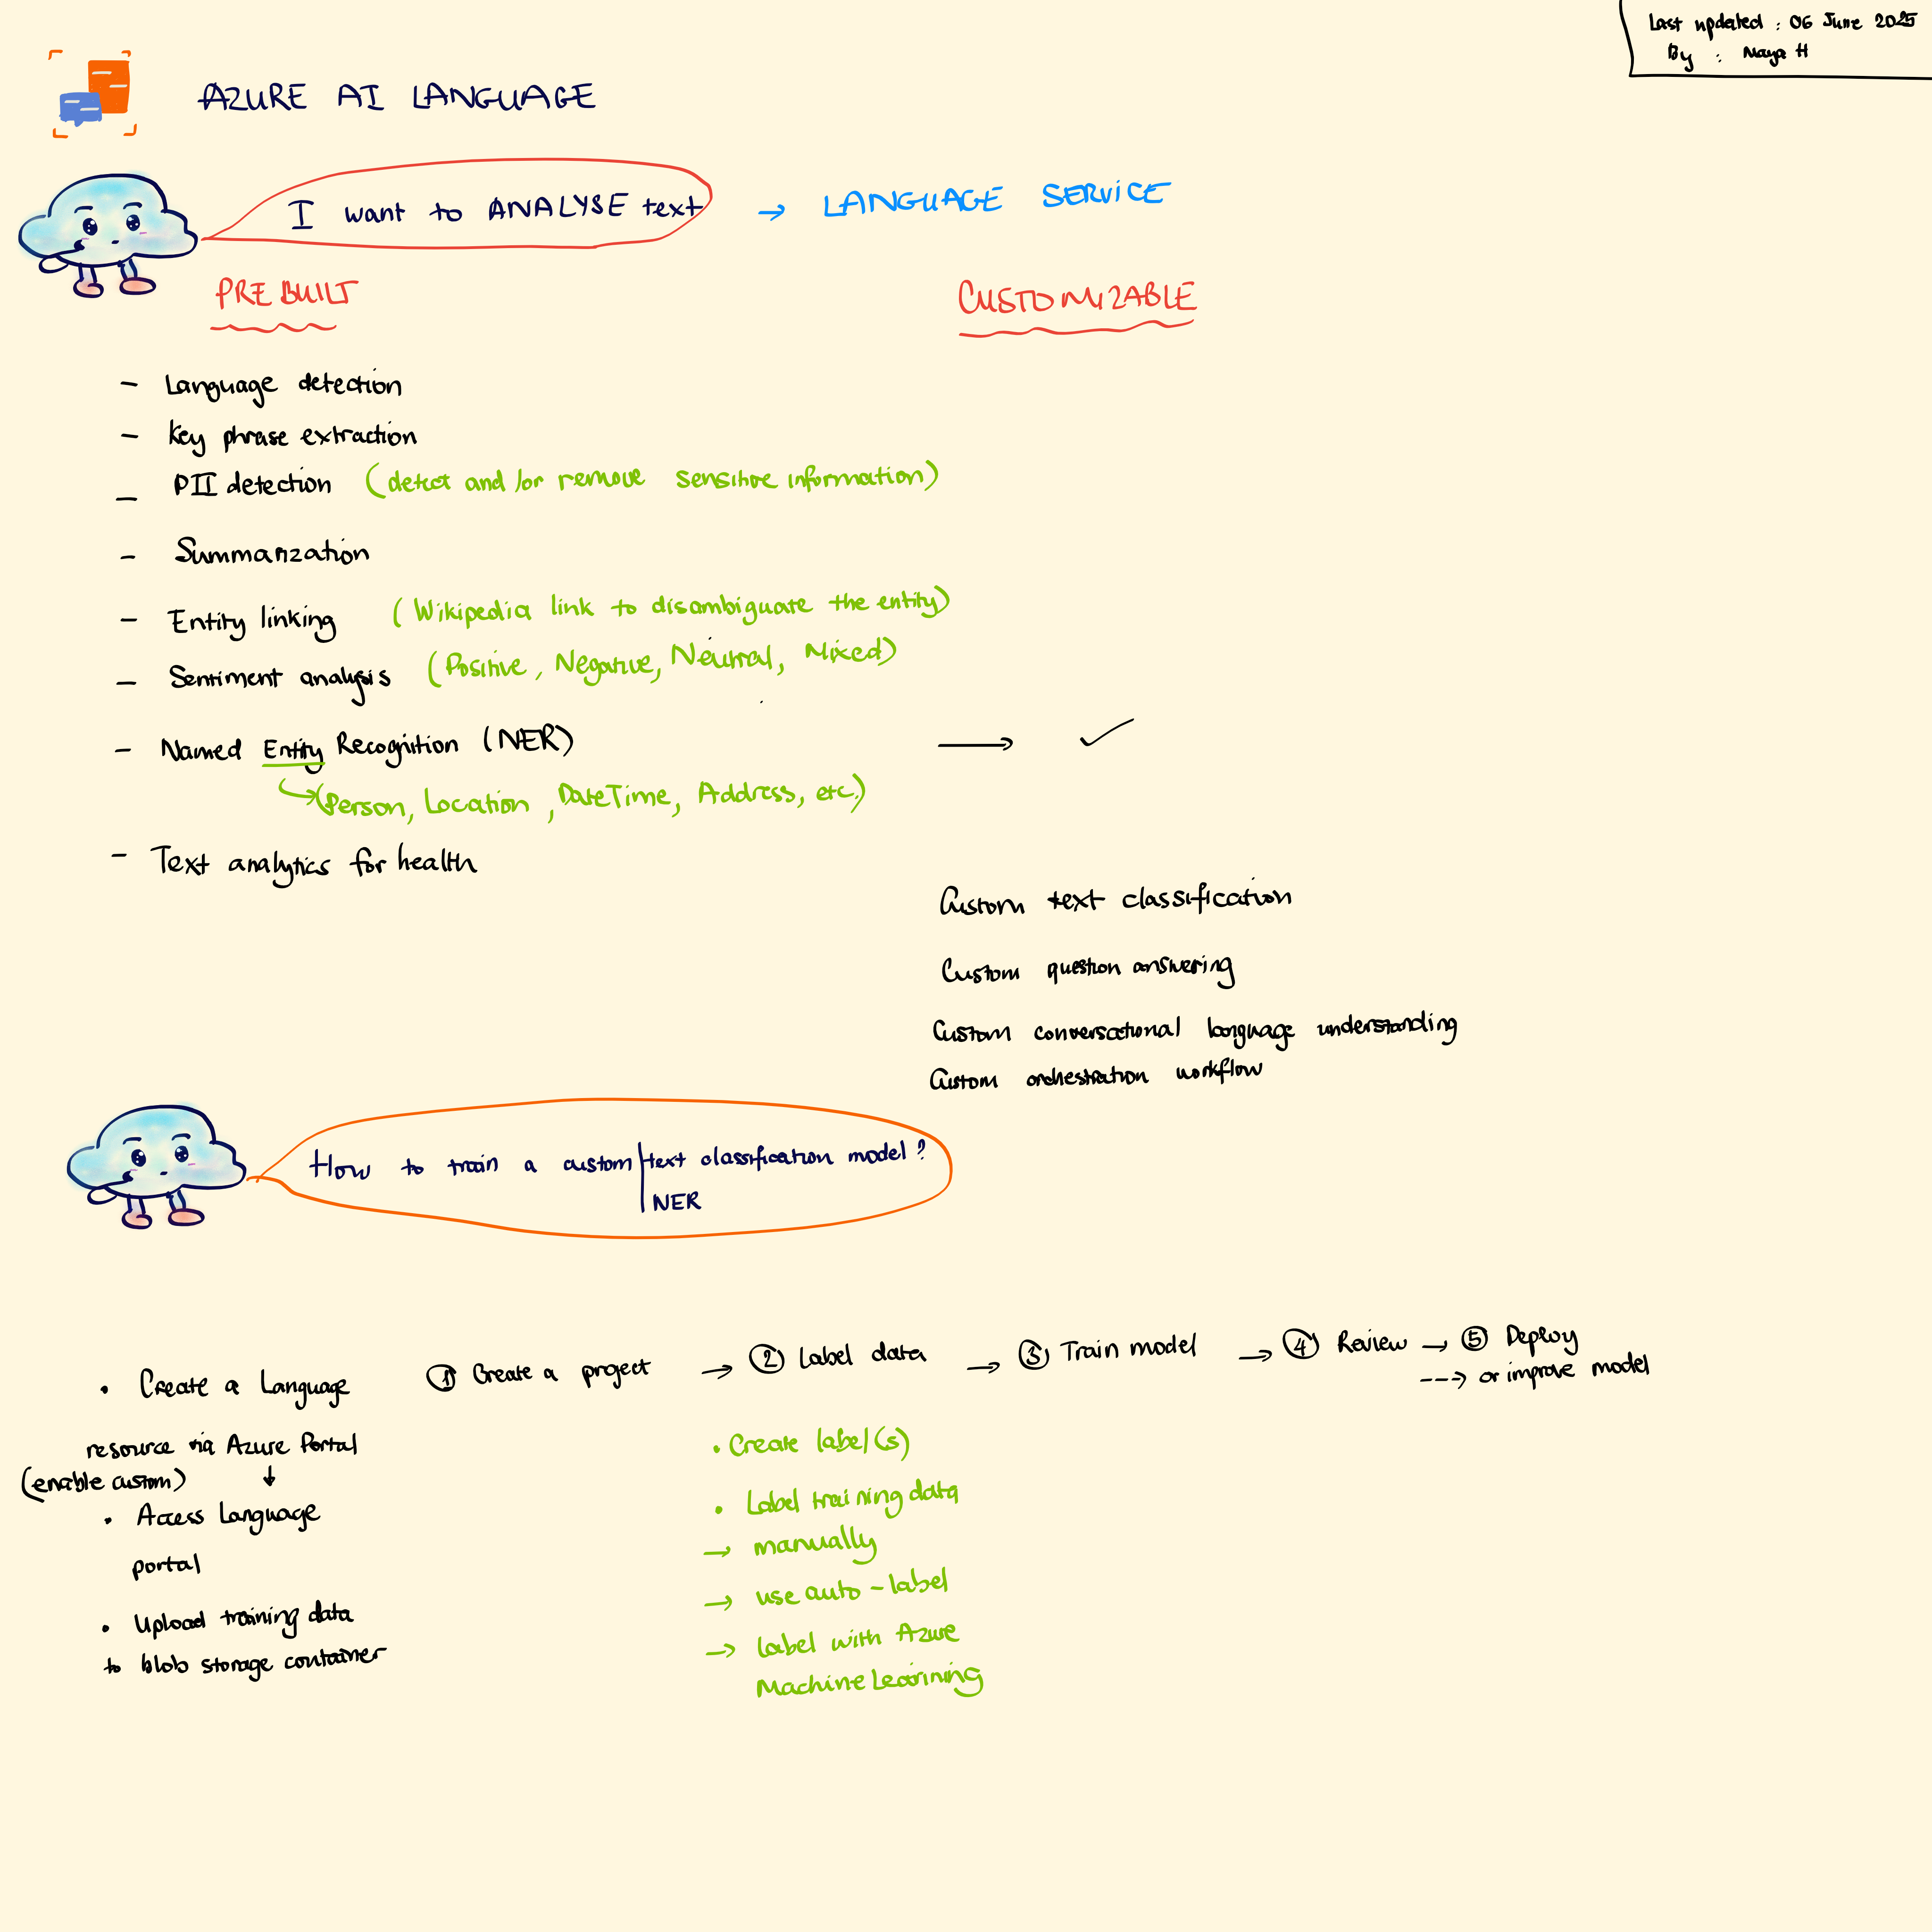 Last updated : 06 June 2025
By : Maya H
AZURE AI LANGUAGE
I want to ANALYSE text → LANGUAGE SERVICE
PREBUILT
CUSTOMIZABLE
- Language detection
- Key phrase extraction
- PII detection (detect and/or remove sensitive information)
- Summarization
- Entity linking (Wikipedia link to disambiguate the entity)
- Sentiment analysis (Positive, Negative, Neutral, Mixed)
- Named Entity Recognition (NER) → ✓
(Person, Location, DateTime, Address, etc.)
- Text analytics for health
Custom text classification
Custom question answering
Custom conversational language understanding
Custom orchestration workflow
How to train a custom text classification model?
NER
① Create a project → ② Label data → ③ Train model → ④ Review → ⑤ Deploy
---> or improve model
• Create a Language
resource via Azure Portal
(enable custom) ↓
• Access Language
portal
• Upload training data
to blob storage container
• Create label(s)
• Label training data
→ manually
→ use auto-label
→ label with Azure
Machine Learining